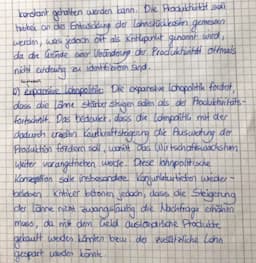 konstant gehalten werden kann. Die Produktivität soll
hierbei an der Entwicklung der Lohnstückkosten gemessen
werden, was jedoch oft als Kritikpunkt genannt wird,
da die Gründe einer Veränderung der Produktivität oftmals
nicht eindeutig zu identifizieren sind.
b) expansive Lohnpolitik: Die expansive Lohnpolitik fordert,
dass die Löhne stärker steigen sollen als der Produktivitäts-
fortschritt. Das bedeutet, dass die Lohnpolitik mit der
dadurch erzielten Kaufkraftsteigerung die Ausweitung der
Produktion fördern soll, womit das Wirtschaftswachstum
weiter vorangetrieben werde. Diese lohnpolitische
Konzeption solle insbesondere Konjunkturtiefen wieder-
beleben. Kritiker betonen jedoch, dass die Steigerung
der Löhne nicht zwangsläufig die Nachfrage erhöhen
muss, da mit dem Geld ausländische Produkte
gekauft werden könnten bzw. der zusätzliche Lohn
gespart werden könnte.